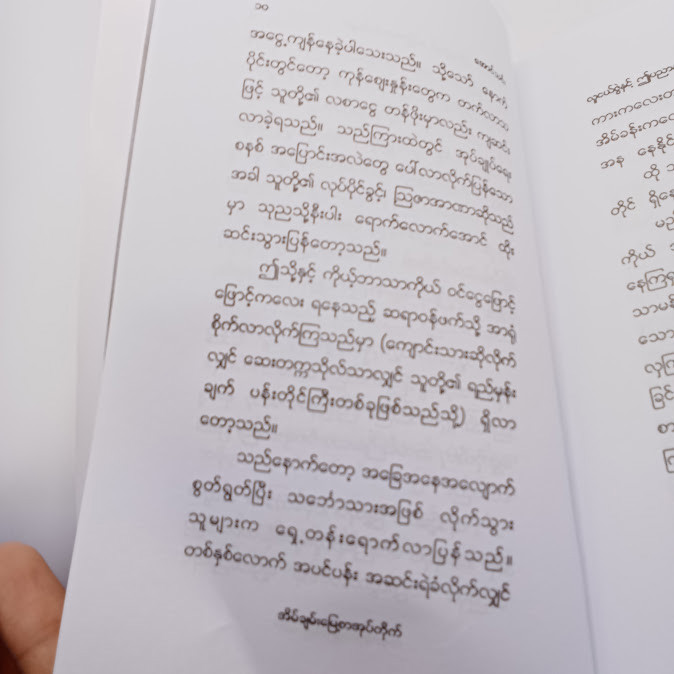 ၁၀
အငွေ့ကျန်နေခဲ့ပါသေးသည်။ သို့သော် နောက်
ပိုင်းတွင်တော့ ကုန်ဈေးနှုန်းတွေက တက်လာသ
ဖြင့် သူတို့၏ လစာငွေ တန်ဖိုးမှာလည်း ကျဆင်း
လာခဲ့ရသည်။ သည်ကြားထဲတွင် အုပ်ချုပ်ရေး
စနစ် အပြောင်းအလဲတွေ ပေါ်လာလိုက်ပြန်သော
အခါ သူတို့၏ လုပ်ပိုင်ခွင့်၊ ဩဇာအာဏာဆိုသည်
မှာ သုညသို့နီးပါး ရောက်လောက်အောင် ထိုး
ဆင်းသွားပြန်တော့သည်။
ဤသို့နှင့် ကိုယ့်ဘာသာကိုယ် ဝင်ငွေဖြောင့်
ဖြောင့်ကလေး ရနေသည့် ဆရာဝန်ဖက်သို့ အာရုံ
စိုက်လာလိုက်ကြသည်မှာ (ကျောင်းသားဆိုလိုက်
လျှင် ဆေးတက္ကသိုလ်သာလျှင် သူတို့၏ ရည်မှန်း
ချက် ပန်းတိုင်ကြီးတစ်ခုဖြစ်သည်သို့) ရှိလာ
တော့သည်။
သည်နောက်တော့ အခြေအနေအလျောက်
စွတ်ရွတ်ပြီး သင်္ဘောသားအဖြစ် လိုက်သွား
သူများက ရှေ့တန်းရောက်လာပြန်သည်။
တစ်နှစ်လောက် အပင်ပန်း အဆင်းရဲခံလိုက်လျှင်
အိမ်ချမ်းမြေ့စာအုပ်တိုက်
ကားကလေးတ
အိမ်ခန်းကလေ
အန နေနိုင်
ထို
တိုင် ရှိနေ
မည်
ကိုယ်
နေကြရ
သာမန်
သော
လှကြ
ခြင်
စာ